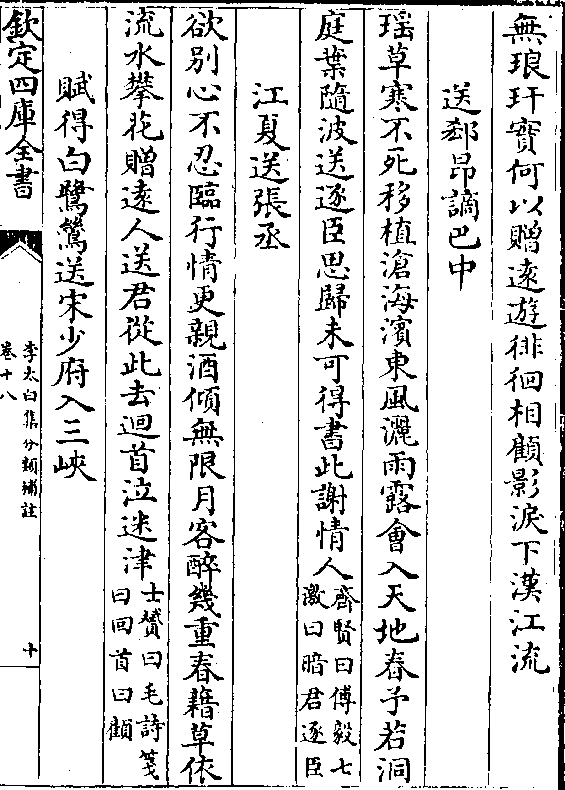 無琅玕寳何以贈逺遊徘徊相顧影淚下漢江流
送郄昂謫巴中
瑶草寒不死移植滄海濱東風灑雨露㑹入天地春予若洞
庭葉隨波送逐臣思歸未可得書此謝情人
齊賢曰傅毅七
激曰暗君逐臣
江夏送張丞
欲别心不忍臨行情更親酒傾無限月客醉幾重春藉草依
流水攀花贈逺人送君從此去迴首泣迷津
士贇曰毛詩箋
曰回首曰顧
賦得白鷺鷥送宋少府入三峽
欽定四庫全書
李太白集分類補註
卷十八
十